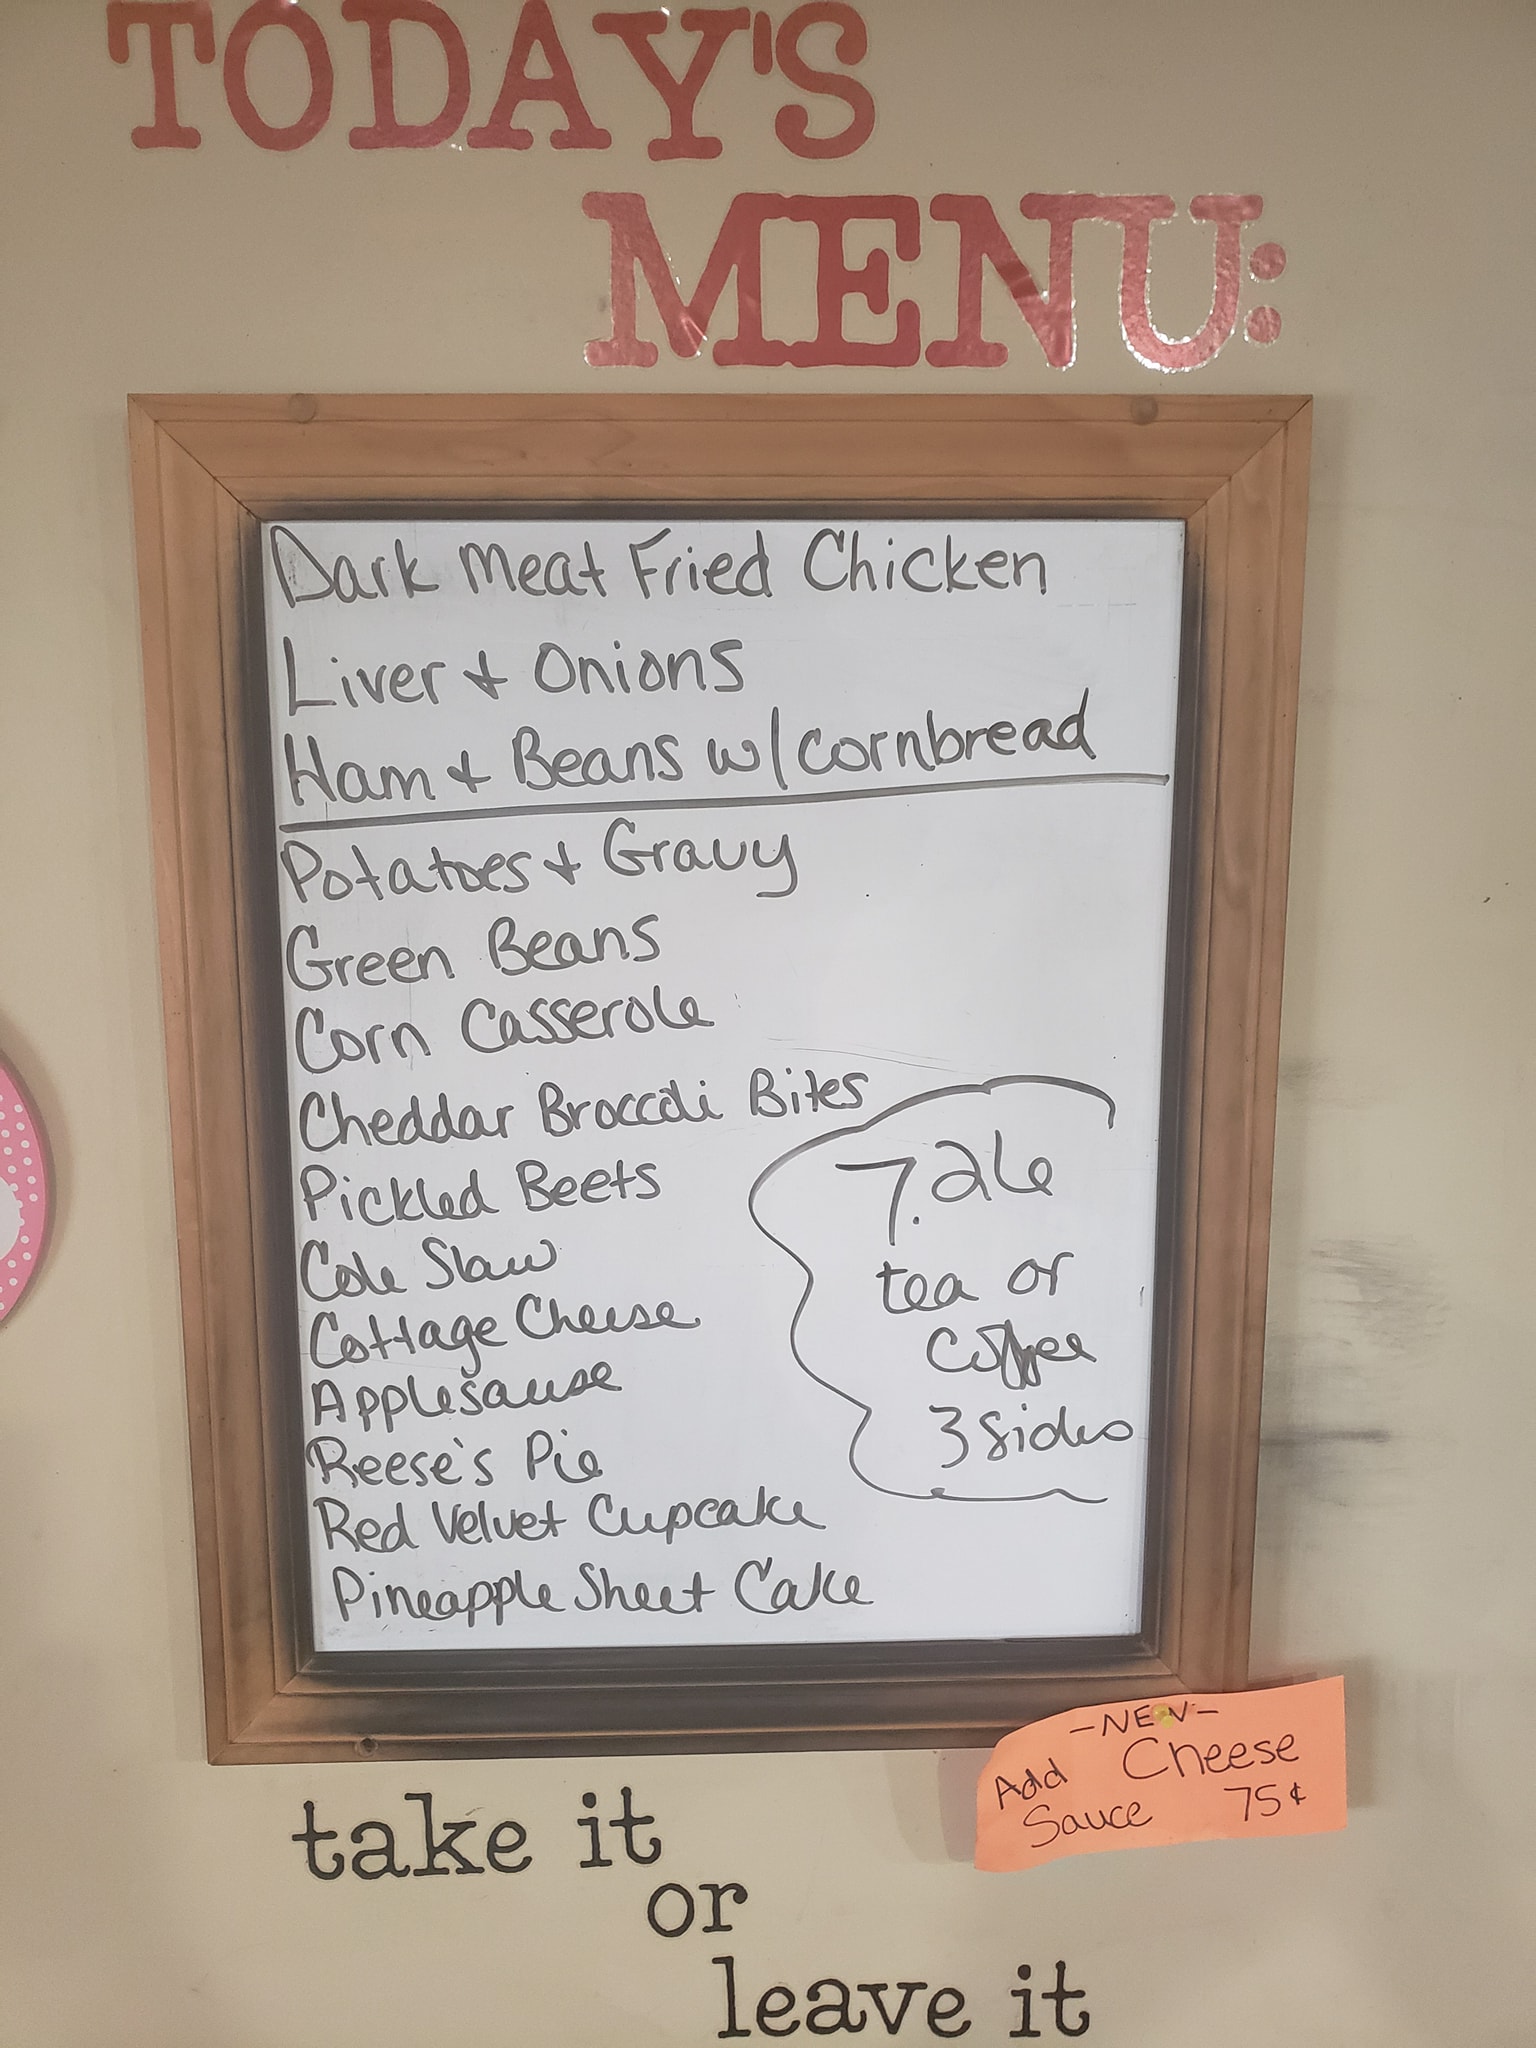 TODAY'S
MENU:
Dark Meat Fried Chicken
Liver + Onions
Ham + Beans w/cornbread
Potatoes + Gravy
Green Beans
Corn Casserole
Cheddar Broccoli Bites
Pickled Beets
Cole Slaw
Cottage Cheese
Applesause
Reese's Pie
Red Velvet Cupcake
Pineapple Sheet Cake
7.26
tea or
coffee
3 sides
-NEW-
Add Cheese
Sauce 75¢
take it
or
leave it